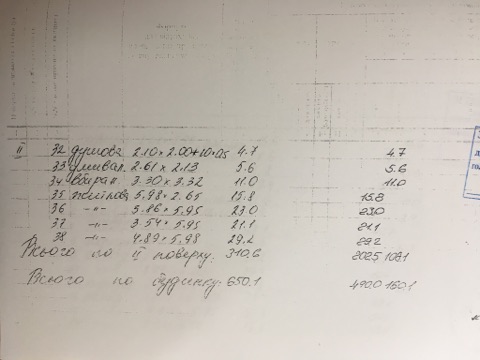 II 32 душова 2.10×2.00+1.0×0.5 4.7 4.7
33 умивал. 2.61 × 2.13 5.6 5.6
34 вбирал. 3.30 × 3.32 11.0 11.0
35 житлова 5.98 × 2.65 15.8 15.8
36 -"- 3.86 × 5.95 23.0 23.0
37 -"- 3.54 × 5.95 21.1 21.1
38 -"- 4.89 × 5.98 29.2 29.2
Всього по II поверху: 310.6 202.5 108.1
Всього по будинку: 650.1 490.0 160.1